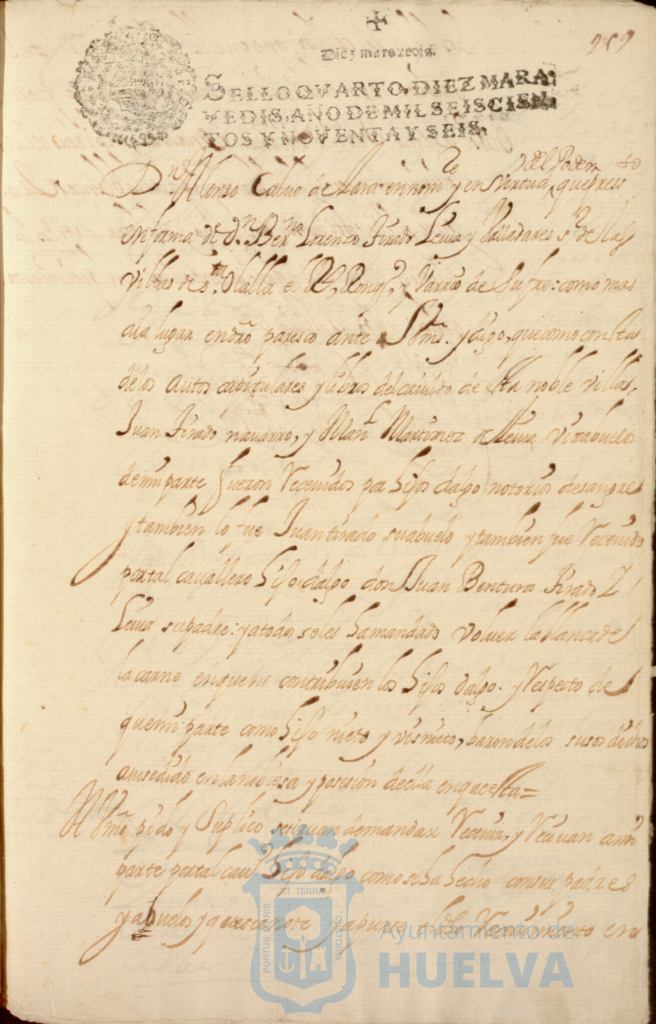 257
Diez maravedis.
SELLO QVARTO, DIEZ MARA-
VEDIS, AÑO DE MIL SEISCIEN-
TOS Y NOVENTA Y SEIS.
Dn Alonso Calvo de Lara en nomre y en virtud del Poder que presto
en forma de Dn Ber.do Lorenzo tirado Leiva y Valladares sr de las
Villas de sta Olalla el Rl, Ronqo, y Varrio de Sufre: como mas
aia lugar en dro paresco ante Vms. y digo, que como consta
de los autos capitulares y libros del cavildo de esta noble villa,
Juan tirado navarro, y Manl Martinez de leiva visabuelos
de mi parte fueron Recevidos por hijos dalgo notorios de sangre
y tambien lo fue Juan tirado su abuelo y tambien fue Recevido
por tal cavallero hijo dalgo don Juan Bentura tirado Z
Leiva su padre: y a todos se les ha mandado volver la blanca de
la carne en que no contribuien los hijos dalgo. y Respecto de
que mi parte como hijo nieto y visnieto, baron de los suso dichos
a susedido en la nobleza y posesion de ella en qe acesta=
A Vms pido y Suplico se sirvan de mandar Recevir, y Recivan a mi
parte por tal cavo hijo dalgo como se ha hecho con sus padres
y abuelos y que se anote y apunte el dho Recevimiento en
PORTUS MARIS
ET TERRAE
CUSTODIA
Ayuntamiento de
HUELVA